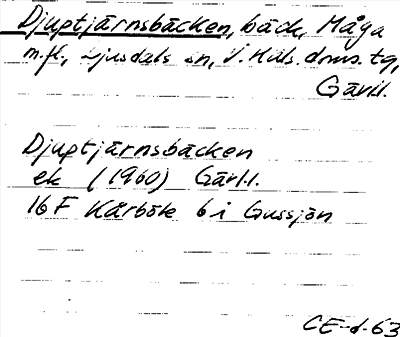 Djuptjärnsbäcken, bäck, Måga
m.fl., Ljusdals sn, V. Häls. doms. tg,
Gävl.
Djuptjärnsbäcken
ek (1960) Gävl.l.
16 F Kårböle 6 i Gussjön
CE-d-63